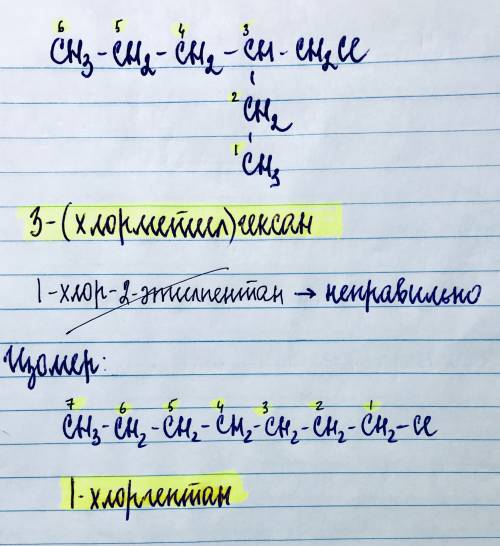 6 5 4 3
CH3 - CH2 - CH2 - CH - CH2Cl
2
CH2
1
CH3
3-(хлорметил)гексан
1-хлор-2-этилпентан → неправильно
Изомер:
7 6 5 4 3 2 1
CH3-CH2-CH2-CH2-CH2-CH2-CH2-Cl
1-хлоргептан